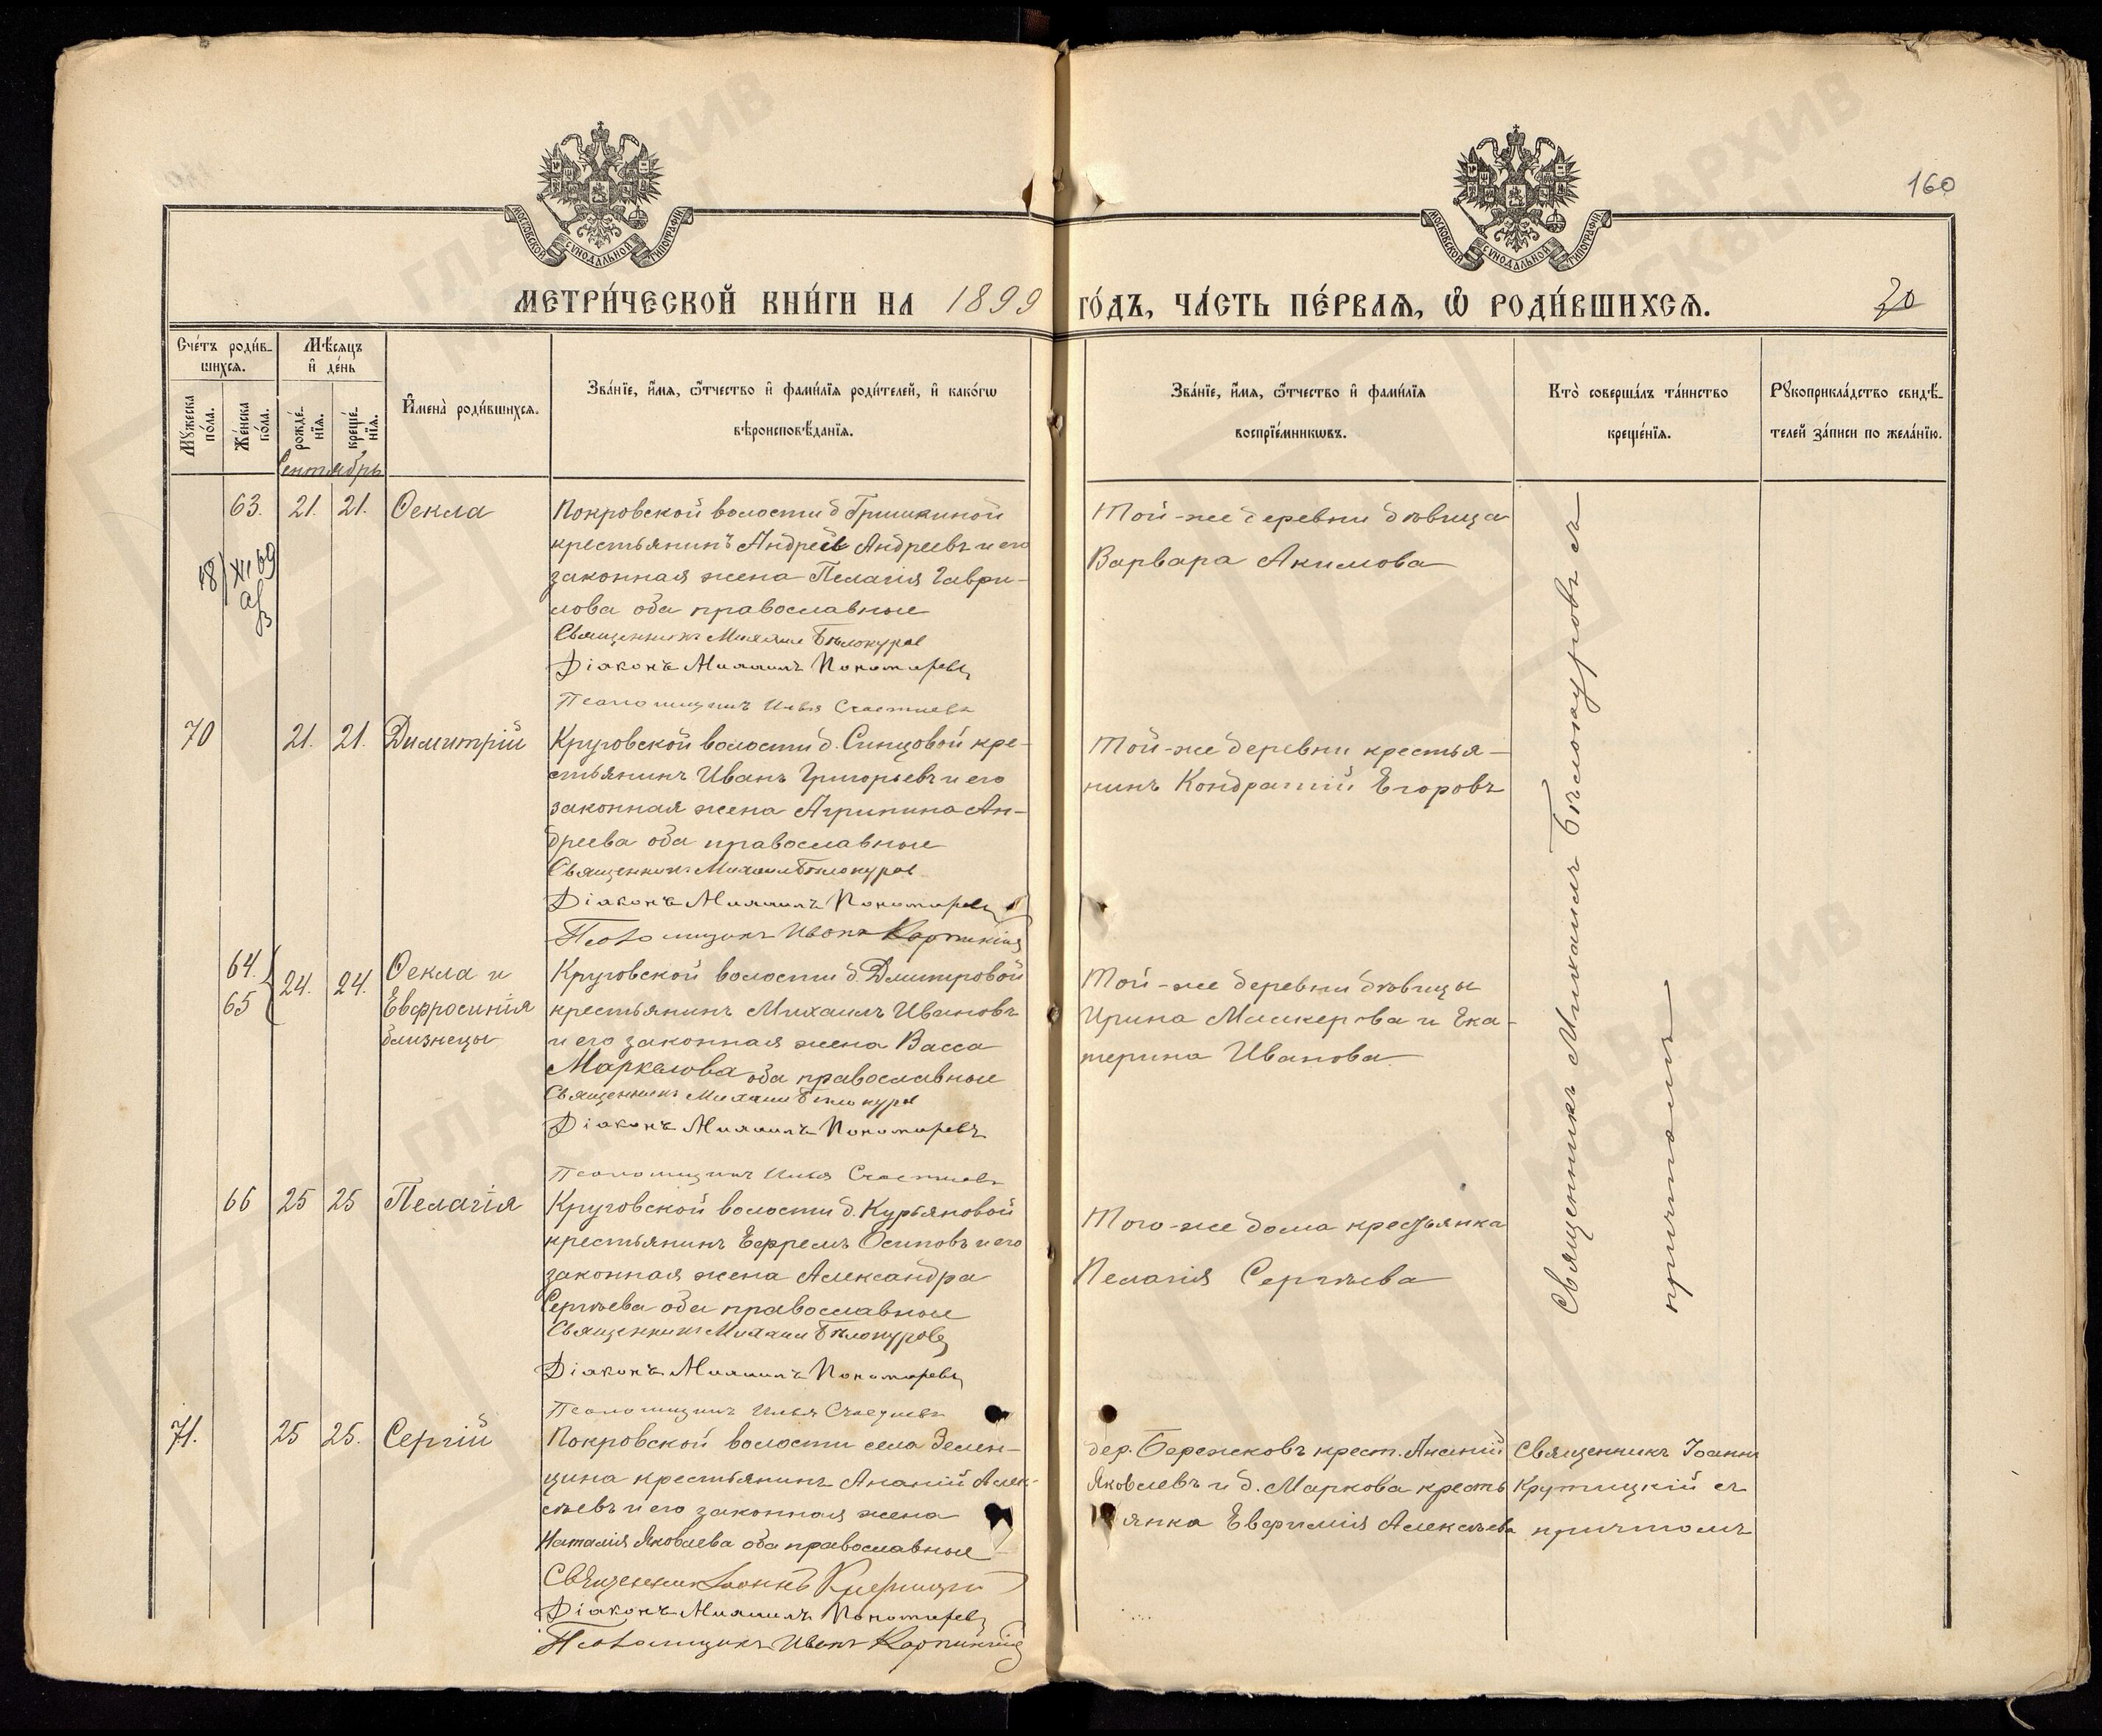 160
МОСКОВСКОЙ СУНОДАЛЬНОЙ ТИПОГРАФІИ
МОСКОВСКОЙ СУНОДАЛЬНОЙ ТИПОГРАФІИ
МЕТРИ́ЧЕСКОЙ КНИ́ГИ НА 1899 ГО́ДЪ, ЧА́СТЬ ПЕ́РВАѦ, Ѽ РОДИ́ВШИХСѦ.
20
Сче́тъ роди́в-
шихсѧ.
Мѣ́сяцъ
и҆ де́нь
Мꙋ́жеска
по́ла.
Же́нска
по́ла.
рожде́-
нїѧ.
креще́-
нїѧ.
И҆мена̀ роди́вшихсѧ.
Зва́нїе, и҆́мѧ, ѻ҆́тчество и҆ фами́лїѧ роди́телей, и҆ како́гѡ
вѣроисповѣ́данїѧ.
Зва́нїе, и҆́мѧ, ѻ҆́тчество и҆ фами́лїѧ
воспрїе́мникѡвъ.
Кто̀ соверша́лъ та́инство
креще́нїѧ.
Рꙋкоприкла́дство свидѣ́-
телей за́писи по жела́нїю.
Сентябрь
63. 21. 21. Ѳекла
Покровской волости д Гришкиной
крестьянинъ Андрей Андреевъ и его
законная жена Пелагія Гаври-
лова оба православные
Священникъ Михаилъ Бѣлокуров
Діаконъ Михаилъ Пономаревъ
Псаломщикъ Илья Счастневъ
Той-же деревни дѣвица
Варвара Акимова
18/XI 69
70 21. 21. Димитрій
Круговской волости д. Синцовой кре-
стьянинъ Иванъ Григорьевъ и его
законная жена Агрипина Ан-
дреева оба православные
Священникъ Михаилъ Бѣлокуров
Діаконъ Михаилъ Пономаревъ
Псаломщикъ Иванъ Карпинскій
Той-же деревни крестья-
нинъ Кондратій Егоровъ
64.
65
24. 24.
Ѳекла и
Евфросинія
близнецы
Круговской волости д. Дмитровой
крестьянинъ Михаилъ Ивановъ
и его законная жена Васса
Маркелова оба православные
Священникъ Михаилъ Бѣлокуров
Діаконъ Михаилъ Пономаревъ
Псаломщикъ Илья Счастневъ
Той-же деревни дѣвицы
Ирина и Ека-
терина Иванова
66 25 25 Пелагія
Круговской волости д. Курьяновой
крестьянинъ Ефремъ Осиповъ и его
законная жена Александра
Сергѣева оба православные
Священникъ Михаилъ Бѣлокуровъ
Діаконъ Михаилъ Пономаревъ
Псаломщикъ Илья Счастневъ
Того-же дома крестьянка
Пелагія Сергѣева
Священникъ Михаилъ Бѣлокуровъ съ
причтомъ
71. 25 25. Сергій
Покровской волости села Зелен-
цина крестьянинъ Ананій Алек-
сѣевъ и его законная жена
Наталія Яковлева оба православные
Священникъ Іоаннъ Крутицкій
Діаконъ Михаилъ Пономаревъ
Псаломщикъ Иванъ Карпинскій
дер. Бережковъ крест. Ананій
Яковлевъ и д. Маркова кресть
янка Евфимія Алексѣева
Священникъ Іоаннъ
Крутицкій съ
причтомъ
ГЛАВАРХИВ
МОСКВЫ
ГЛАВАРХИВ
МОСКВЫ
ГЛАВАРХИВ
МОСКВЫ
ГЛАВАРХИВ
МОСКВЫ